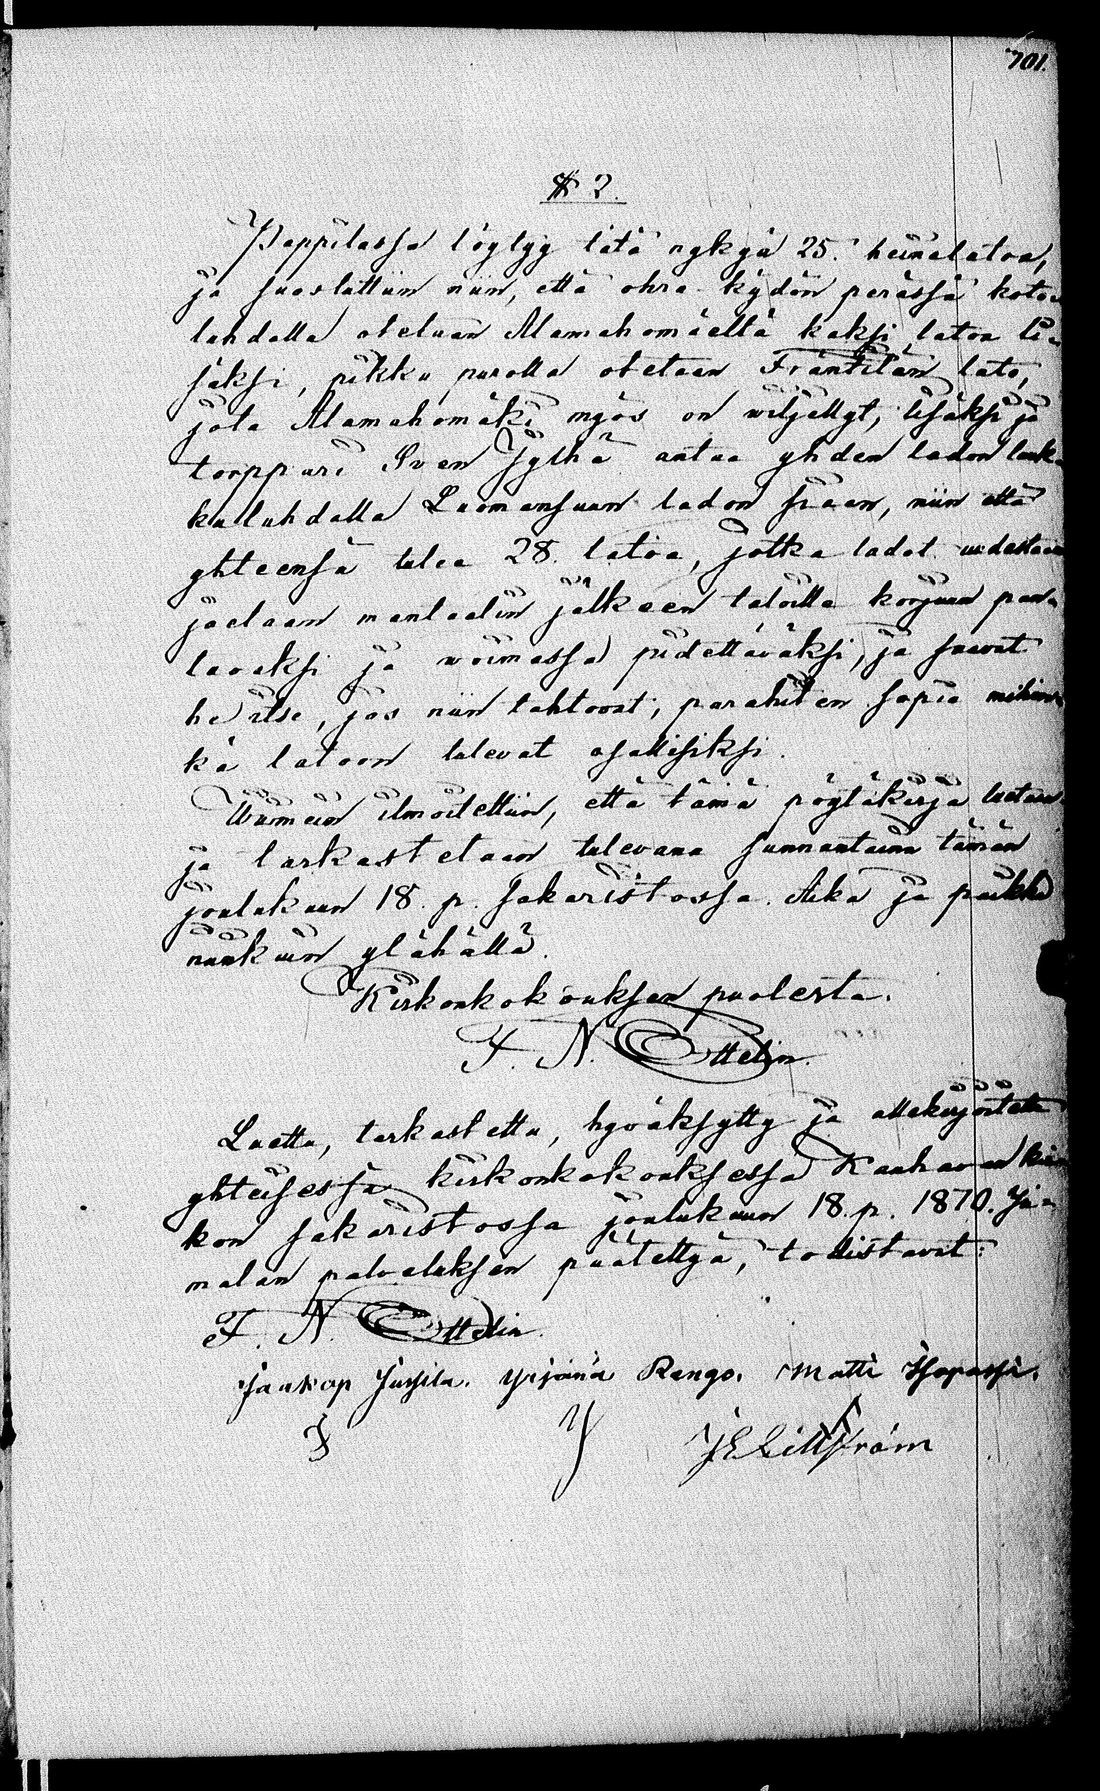 701.
§ 2.
Pappilassa löytyy tätä nykyä 25. heinälatoa,
ja suostuttiin niin, että ohra kydön perässä koto-
lahdalla otetaan Alamahomäeltä kaksi latoa li-
säksi, pikku purolla otetaan Fräntilän lato,
jota Alamahomäki myös on wiljellyt, lisäksi ja
torppari Sven Jylhä antaa yhden ladon
luhdalla Luomansuun ladon siaan, niin että
yhteensä tulee 28. latoa, jotka ladot uudestaan
jaetaan mantaalin jälkeen taloilla korjuun pan-
tavaksi ja woimassa pidettäväksi, ja saavat
he itse, jos niin tahtovat, parahiten sopia mihin-
kä latoon tulevat osallisiksi.
Wiimein ilmoitettiin, että tämä pöytäkirja luetaan
ja tarkastetaan tulevana sunnantaina tämän
joulukuun 18. p. sakaristossa. Aika ja paikka
niinkuin ylähällä.
Kirkonkokouksen puolesta.
F. N. Ottelin.
Luettu, tarkastettu, hyväksytty ja allekirjoitettu
yhteisessä kirkonkokouksessa Kauhavan kir-
kon sakaristossa joulukuun 18. p. 1870. Ju-
malan palveluksen päätettyä, todistavat:
F. N. Ottelin.
Jaakop Jussila. Yrjänä Rengo. Matti Isopassi.
J E Lillström